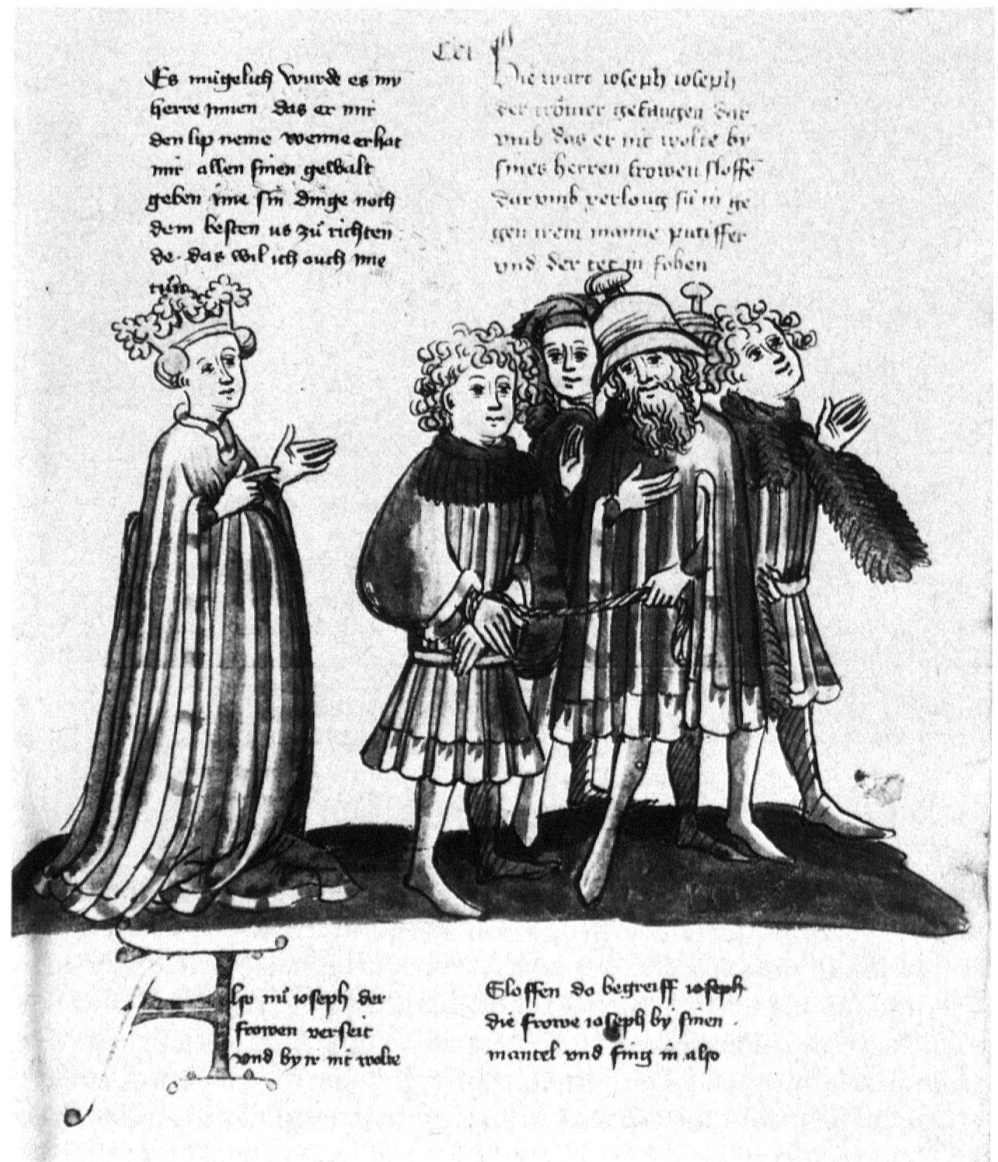 Es mügelich wurde es my
herre jnnen das er mir
den lip neme wenne er hat
mir allen sinen gewalt
geben ime sin dinge noch
dem besten us zů richten
de. das wil ich ouch nie
tůn
Die wart ioseph ioseph
der trömer gefangen dar
vmb das er nit wolte by
sines herren frowen sloffe
dar vmb verloug sü in ge
gen irem manne putiffer
vnd der tet in fohen
Also nů ioseph der
frowen verseit
vnd by ir nit wolte
Sloffen do begreiff ioseph
die frowe ioseph by sinen
mantel vnd fing in also